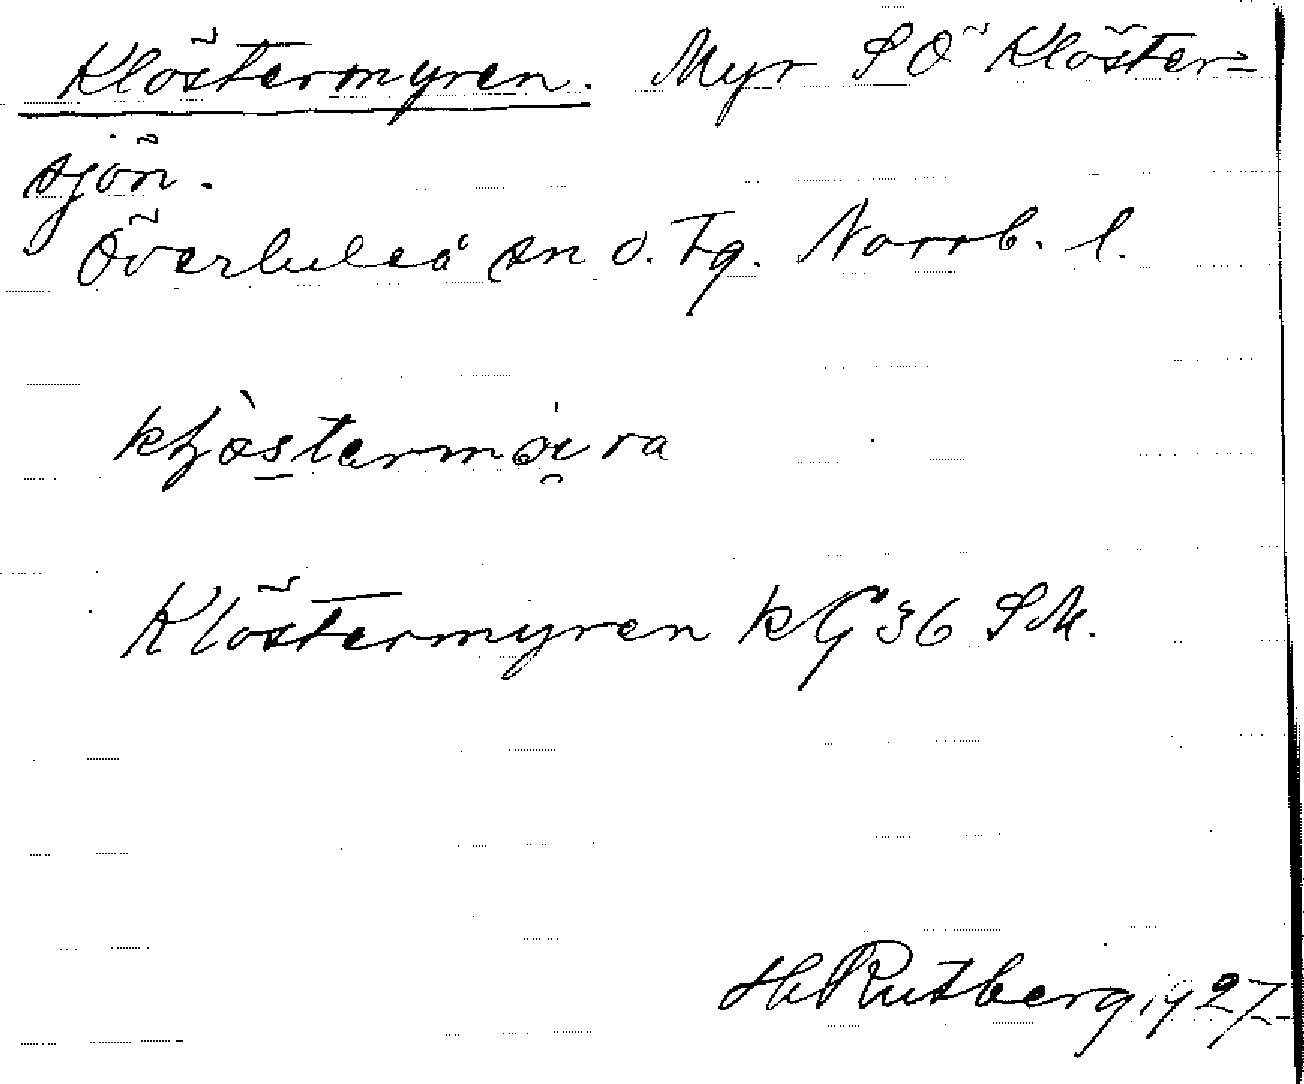 Klöstermyren. Myr SÖ Klöster=
sjön.
Överluleå sn o. tg. Norrb. l.
Klöstermyren kG 36 SM.
H Rutberg 1927.